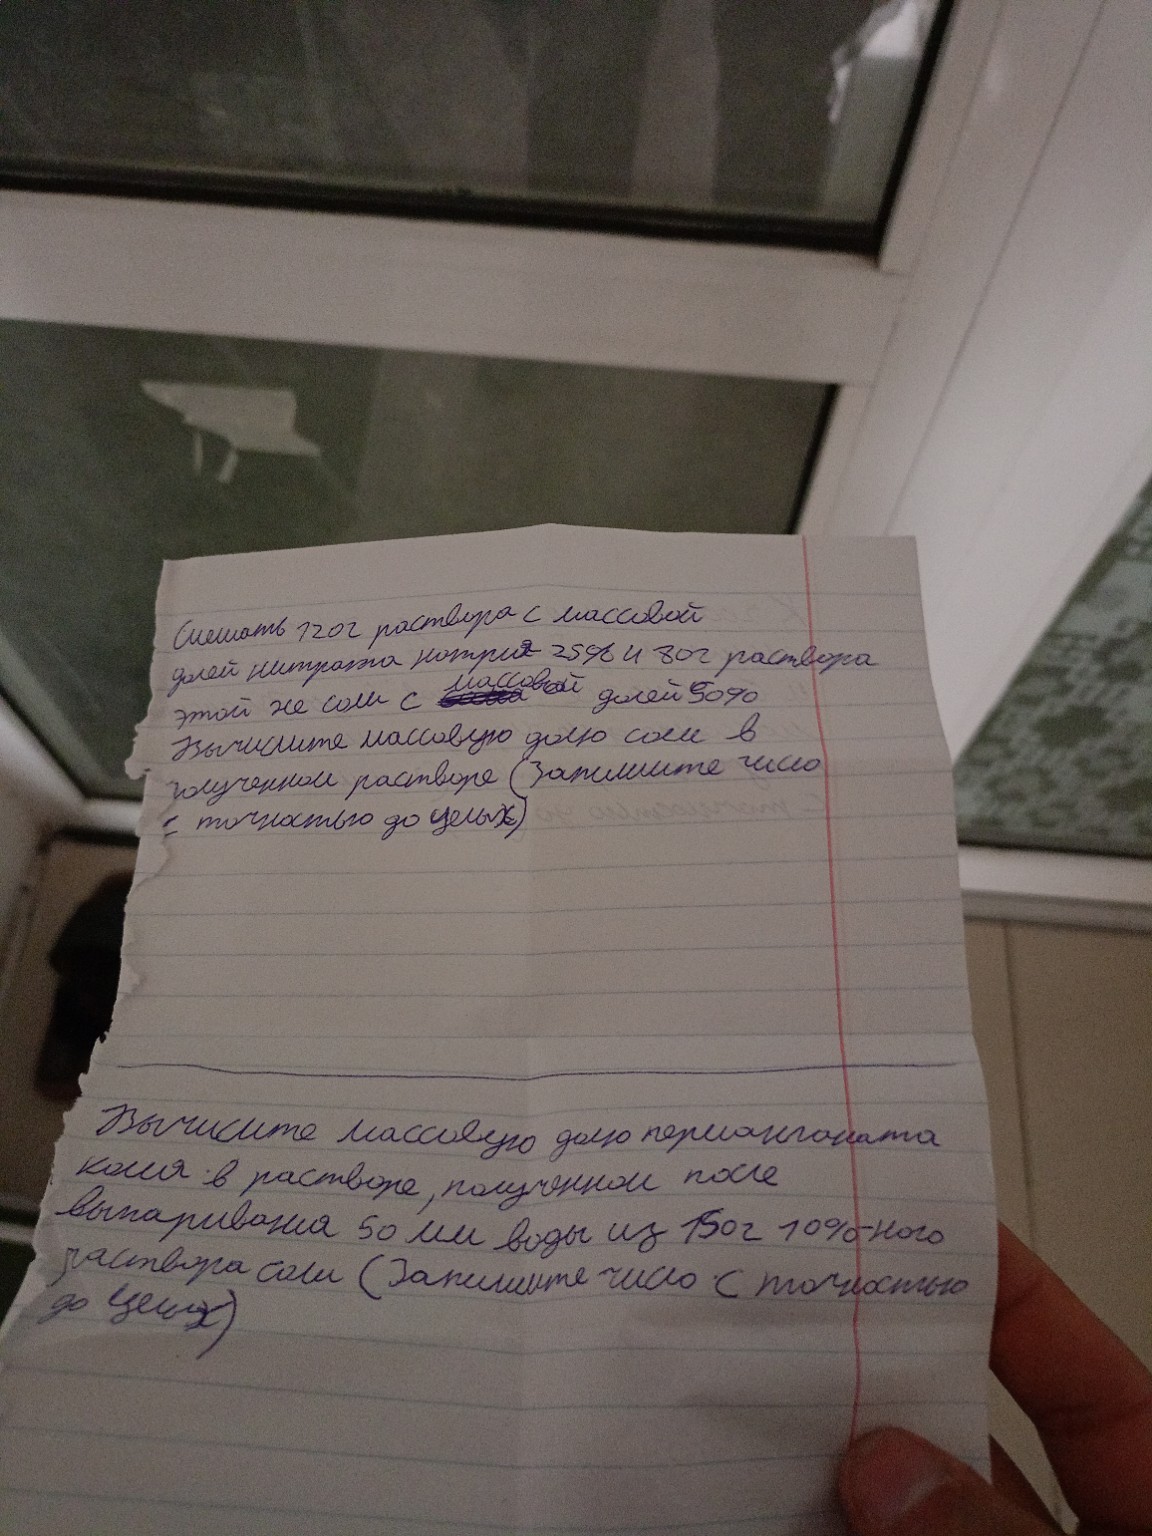 Смешать 120г раствора с массовой
долей нитрата натрия 25% и 80г раствора
этой же соли с массовой долей 50%
Вычислите массовую долю соли в
полученном растворе (Запишите число
с точностью до целых)
Вычислите массовую долю перманганата
калия в растворе, полученном после
выпаривания 50 мл воды из 150г 10%-ного
раствора соли (Запишите число с точностью
до целых)